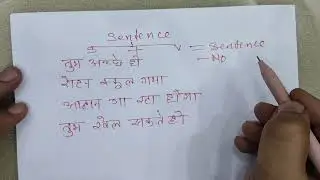 Sentence
= Sentence
- No
तुम अच्छे हो
रोहन स्कूल गया
आहान गा रहा होगा
तुम खेल सकते हो